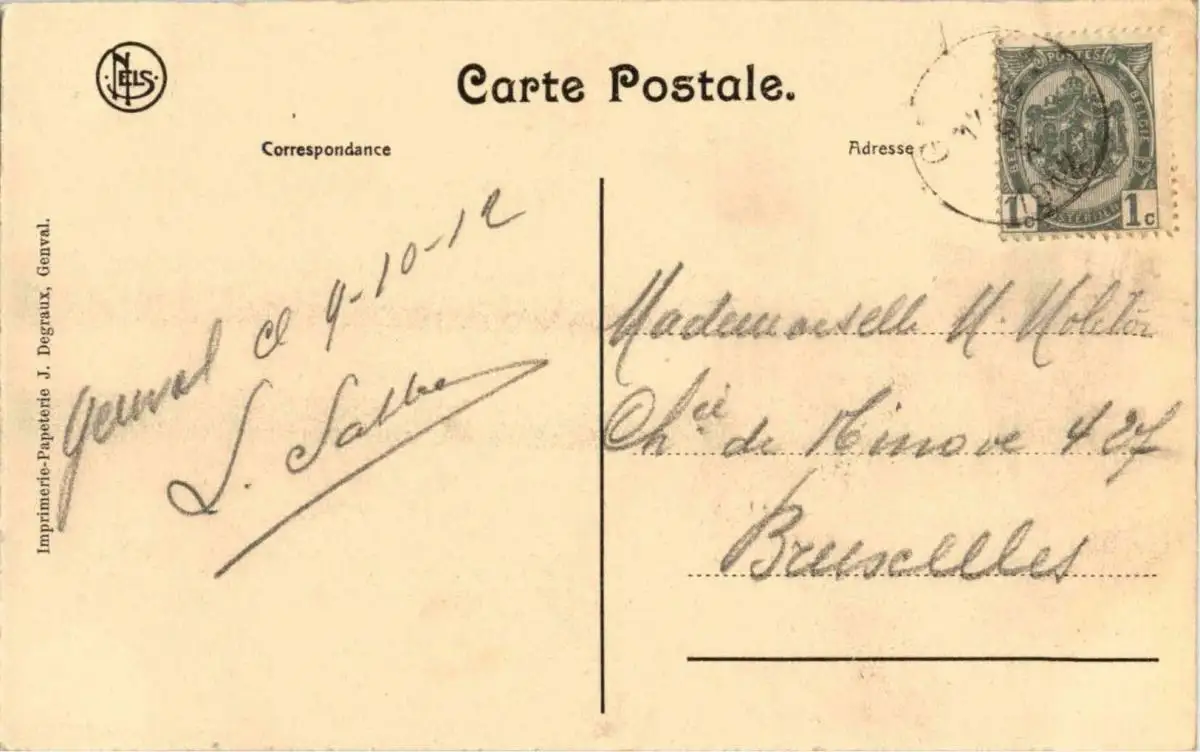 NELS
Carte Postale.
Correspondance
Adresse
POSTES
BELGIQUE BELGIË
1c 1c
Imprimerie-Papeterie J. Degraux, Genval.
Genval el 9-10-12
Mademoiselle M. Molitor
Ch.ée de Ninove 427
Bruxelles